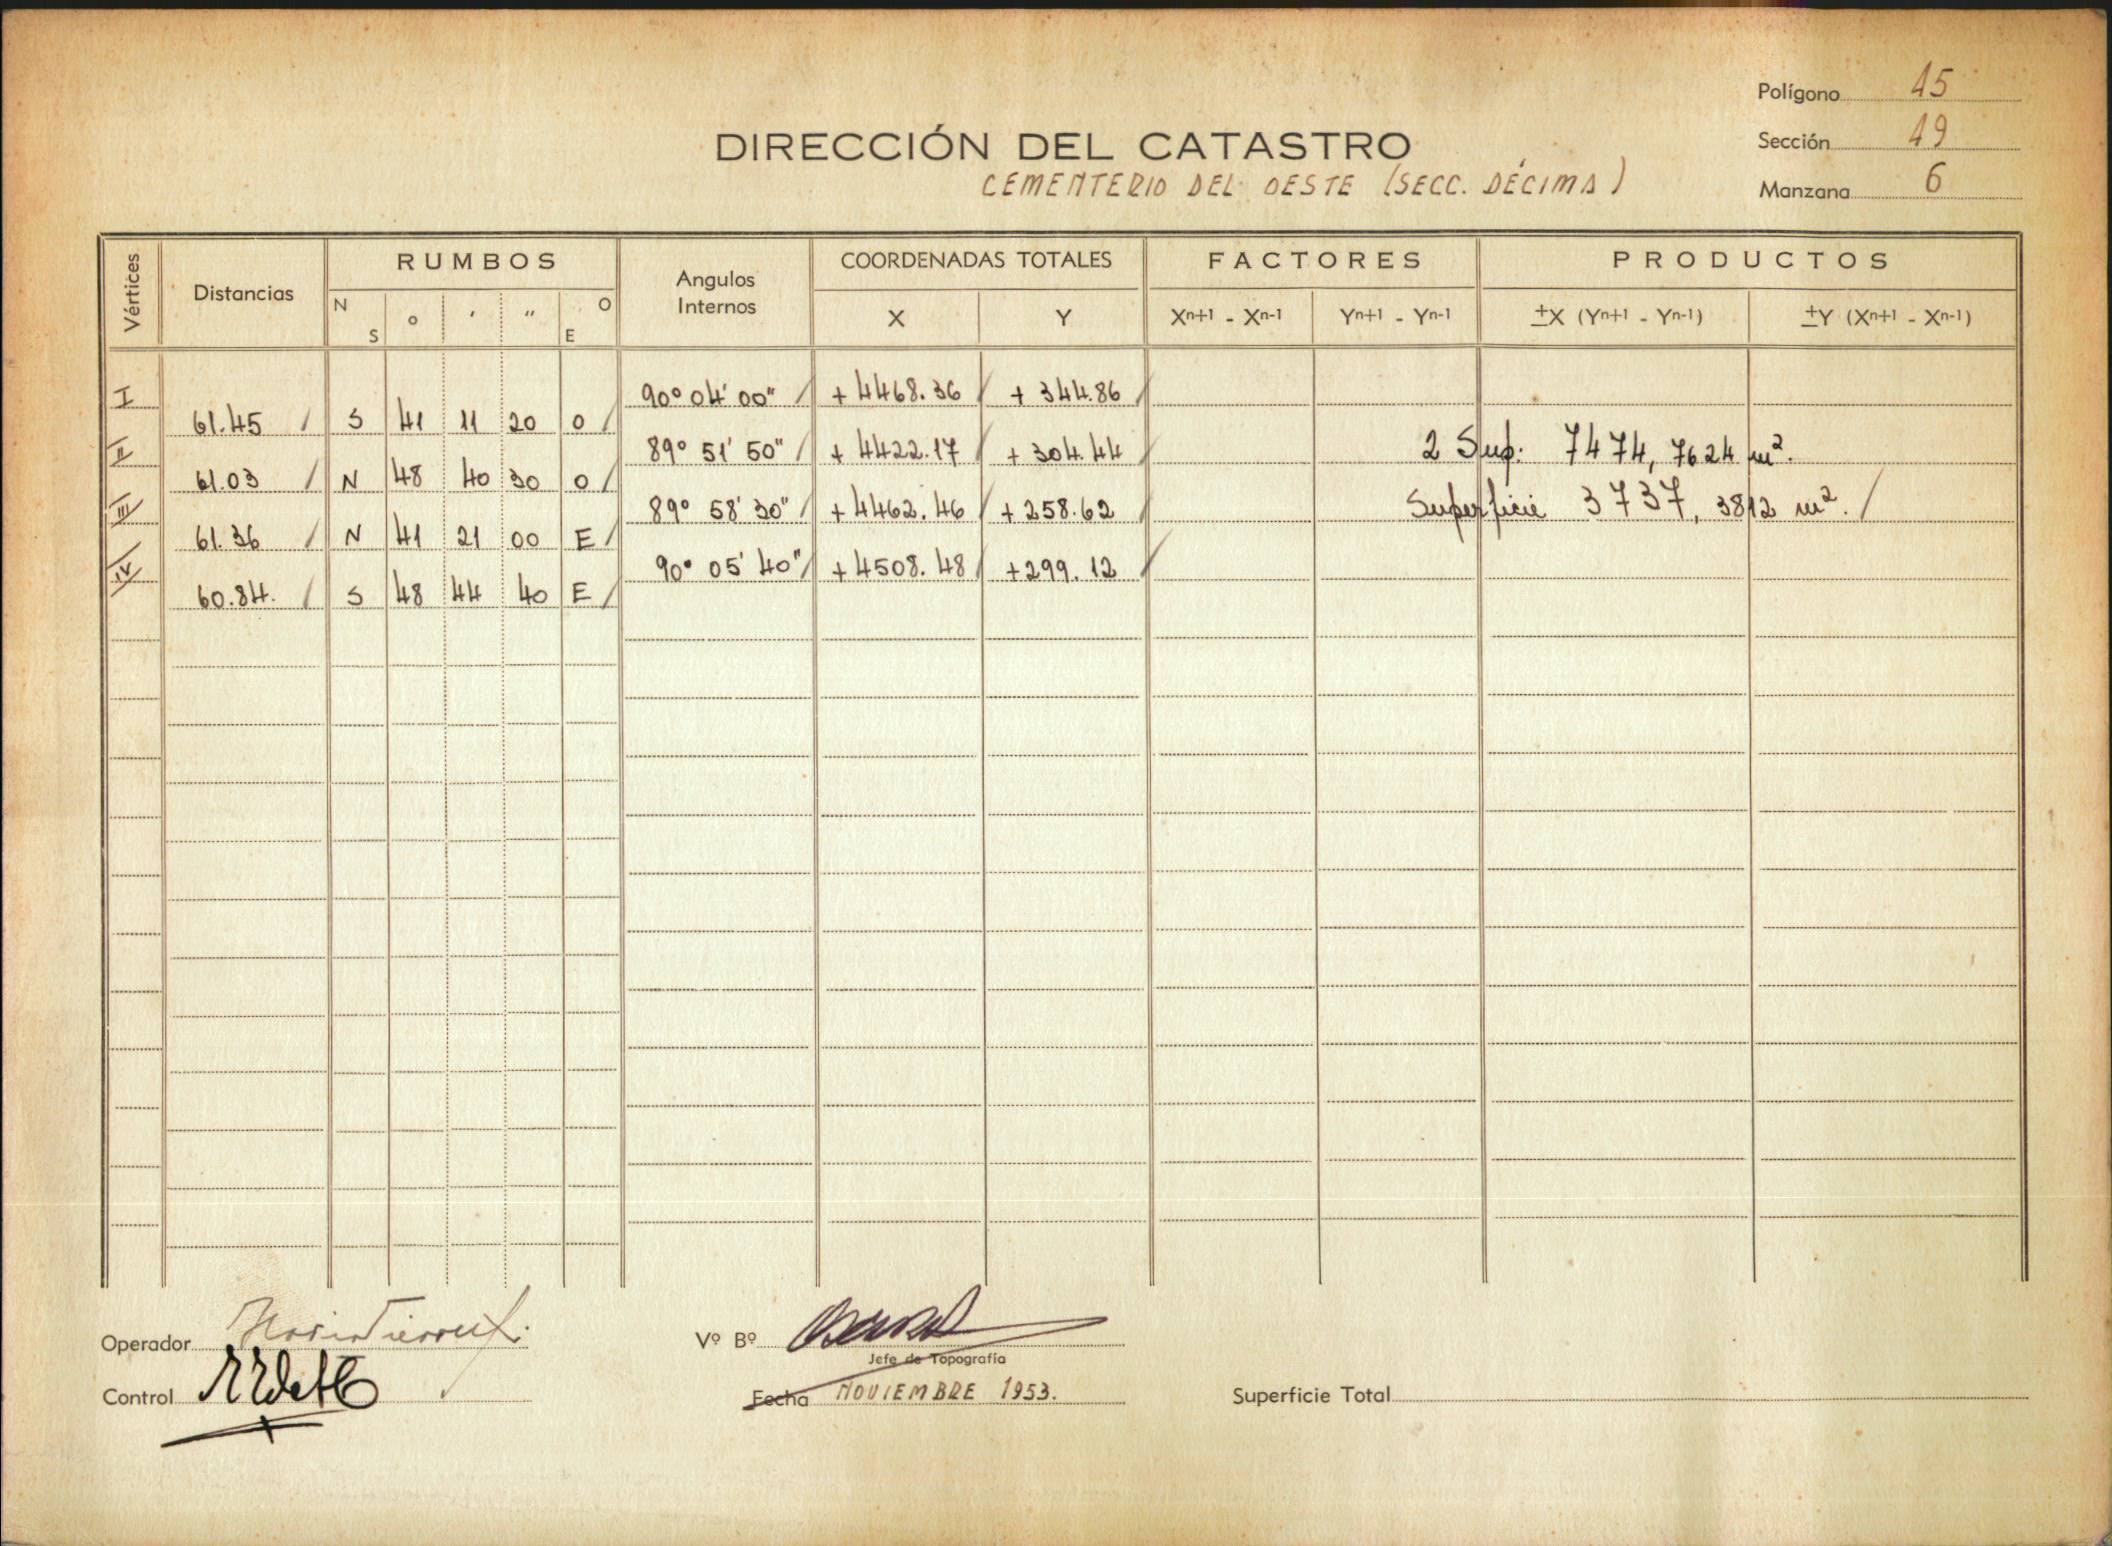 Polígono 15
DIRECCIÓN DEL CATASTRO
Sección 19
CEMENTERIO DEL OESTE (SECC. DÉCIMA)
Manzana 6
Vértices Distancias RUMBOS Angulos Internos COORDENADAS TOTALES FACTORES PRODUCTOS
N S o ' " O E X Y Xn+1 - Xn-1 Yn+1 - Yn-1 ±X (Yn+1 - Yn-1) ±Y (Xn+1 - Xn-1)
I 90° 04' 00" / + 4468.36 / + 344.86 /
61.45 / S 41 11 20 O /
II 89° 51' 50" / + 4422.17 / + 304.44 2 Sup: 7474, 7624 m².
61.03 / N 48 40 30 O /
III 89° 58' 30" / + 4462.46 / + 258.62 Superficie 3737, 3812 m². /
61.36 / N 41 21 00 E /
IV 90° 05' 40" / + 4508.48 / + 299.12 /
60.84. / S 48 44 40 E /
Operador
Vº Bº
Jefe de Topografía
Control
Fecha NOVIEMBRE 1953.
Superficie Total